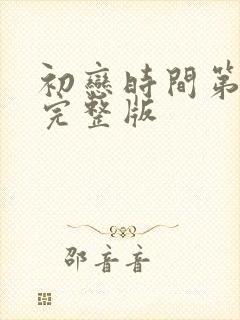 初戀時間第
完整版
邵音音